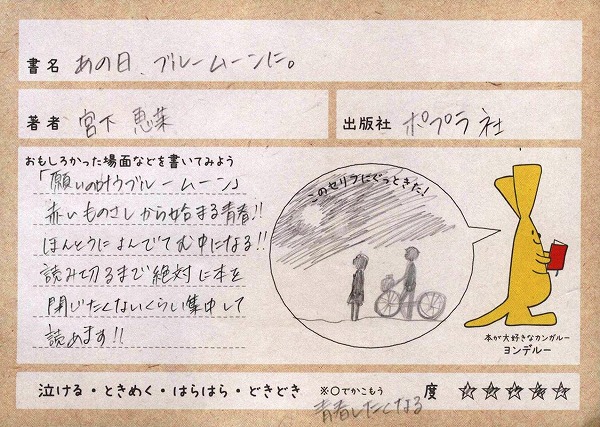 書名 あの日、ブルームーンに。
著者 宮下恵茉
出版社 ポプラ社
おもしろかった場面などを書いてみよう
「願いの叶うブルームーン」
赤いものさしから始まる青春!!
ほんとうによんでてむ中になる!!
読み切るまで絶対に本を
閉じたくないくらい集中して
読めます!!
このセリフにぐっときた!
本が大好きなカンガルー
ヨンデルー
泣ける・ときめく・はらはら・どきどき ※○でかこもう 度 ☆☆☆☆☆
青春したくなる